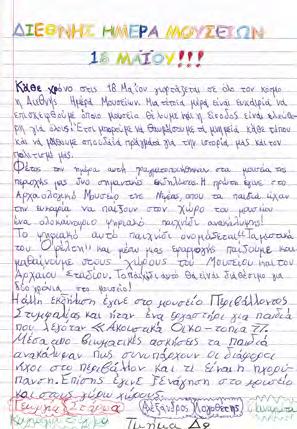 ΔΙΕΘΝΗΣ ΗΜΕΡΑ ΜΟΥΣΕΙΩΝ
18 ΜΑΪΟΥ!!!
Κάθε χρόνο στις 18 Μαΐου γιορτάζεται σε όλο τον κόσμο
η Διεθνής Ημέρα Μουσείων. Μια τέτοια μέρα είναι ευκαιρία να
επισκεφθούμε όποιο μουσείο θέλουμε και η είσοδος είναι ελεύθε-
ρη για όλους! Έτσι μπορούμε να θαυμάσουμε τα μνημεία κάθε τόπου
και να μάθουμε σπουδαία πράγματα για την ιστορία μας και τον
πολιτισμό μας.
Φέτος την ημέρα αυτή πραγματοποιήθηκαν στα μουσεία της
περιοχής μας δυο σημαντικές εκδηλώσεις. Η πρώτη έγινε στο
Αρχαιολογικό Μουσείο της Νεμέας, όπου τα παιδιά είχαν
την ευκαιρία να παίξουν στον χώρο του μουσείου
ένα ολοκαίνουριο ψηφιακό παιχνίδι ανακάλυψης!
Το ψηφιακό αυτό παιχνίδι ονομάζεται "Τα μυστικά
του Οφέλτη" και μέσω μιας εφαρμογής παίζουμε και
μαθαίνουμε στους χώρους του Μουσείου και του
Αρχαίου Σταδίου. Το παιχνίδι αυτό θα είναι διαθέσιμο για
δύο χρόνια στο μουσείο!
Η άλλη εκδήλωση έγινε στο μουσείο Περιβάλλοντος
Στυμφαλίας και ήταν ένα εργαστήρι για παιδιά
που λεγόταν «Ακουστικά Οικο-τοπία».
Μέσα από βιωματικές ασκήσεις τα παιδιά
ανακάλυψαν πώς συνυπάρχουν οι διάφοροι
ήχοι στο περιβάλλον και τι είναι η ηχορύ-
πανση. Επίσης έγινε ξενάγηση στο μουσείο
και στους γύρω χώρους.
Γεωργία Στάικα Αλέξανδρος
Τμήμα Δ2